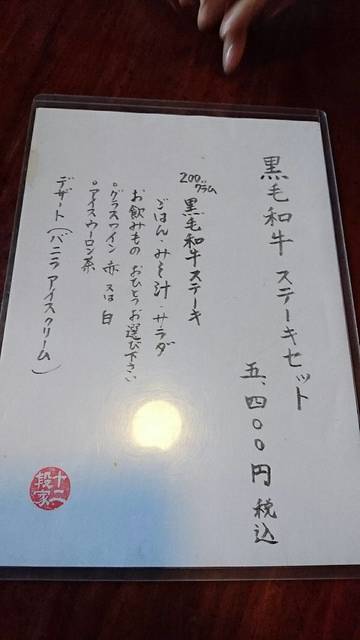 黒毛和牛ステーキセット
五、四〇〇円 税込
200グラム
黒毛和牛ステーキ
ごはん・みそ汁・サラダ
お飲みもの おひとつお選び下さい
○グラスワイン 赤又は白
○アイスウーロン茶
デザート（バニラアイスクリーム）
十二段家